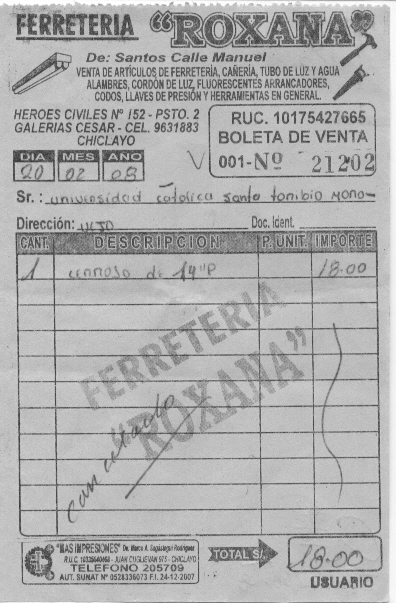 FERRETERIA "ROXANA"
De: Santos Calle Manuel
VENTA DE ARTÍCULOS DE FERRETERÍA, CAÑERÍA, TUBO DE LUZ Y AGUA
ALAMBRES, CORDÓN DE LUZ, FLUORESCENTES ARRANCADORES,
CODOS, LLAVES DE PRESIÓN Y HERRAMIENTAS EN GENERAL.
HEROES CIVILES Nº 152 - PSTO. 2
GALERIAS CESAR - CEL. 9631883
CHICLAYO
RUC. 10175427665
BOLETA DE VENTA
001-Nº 21202
DIA MES AÑO
20 02 08
Sr.: universidad catolica santo toribio Mogro-
Dirección: Doc. Ident.
CANT. DESCRIPCION P. UNIT. IMPORTE
1 de 14"P 18.00
FERRETERIA
"ROXANA"
cancelado
"MAS IMPRESIONES" De: Marco A. Sagastegui Rodriguez
R.U.C. - JUAN CUGLIEVAN 975 - CHICLAYO
TELEFONO 205709
AUT. SUNAT Nº 0528336073 F.I. 24-12-2007
TOTAL S/. 18.00
USUARIO